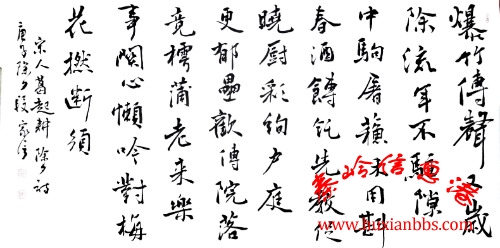 爆竹傳聲又歲
除流年不驗隙
中駒屠蘇未用斟
春酒餺飥先教從
曉厨彩絢夕庭
更郁壘歡傳院落
竟樗蒲老來樂
事閑心懶吟對梅
花撚斷須
宋人葛起耕除夕詩
庚子除夕
www.luxianbbs.com